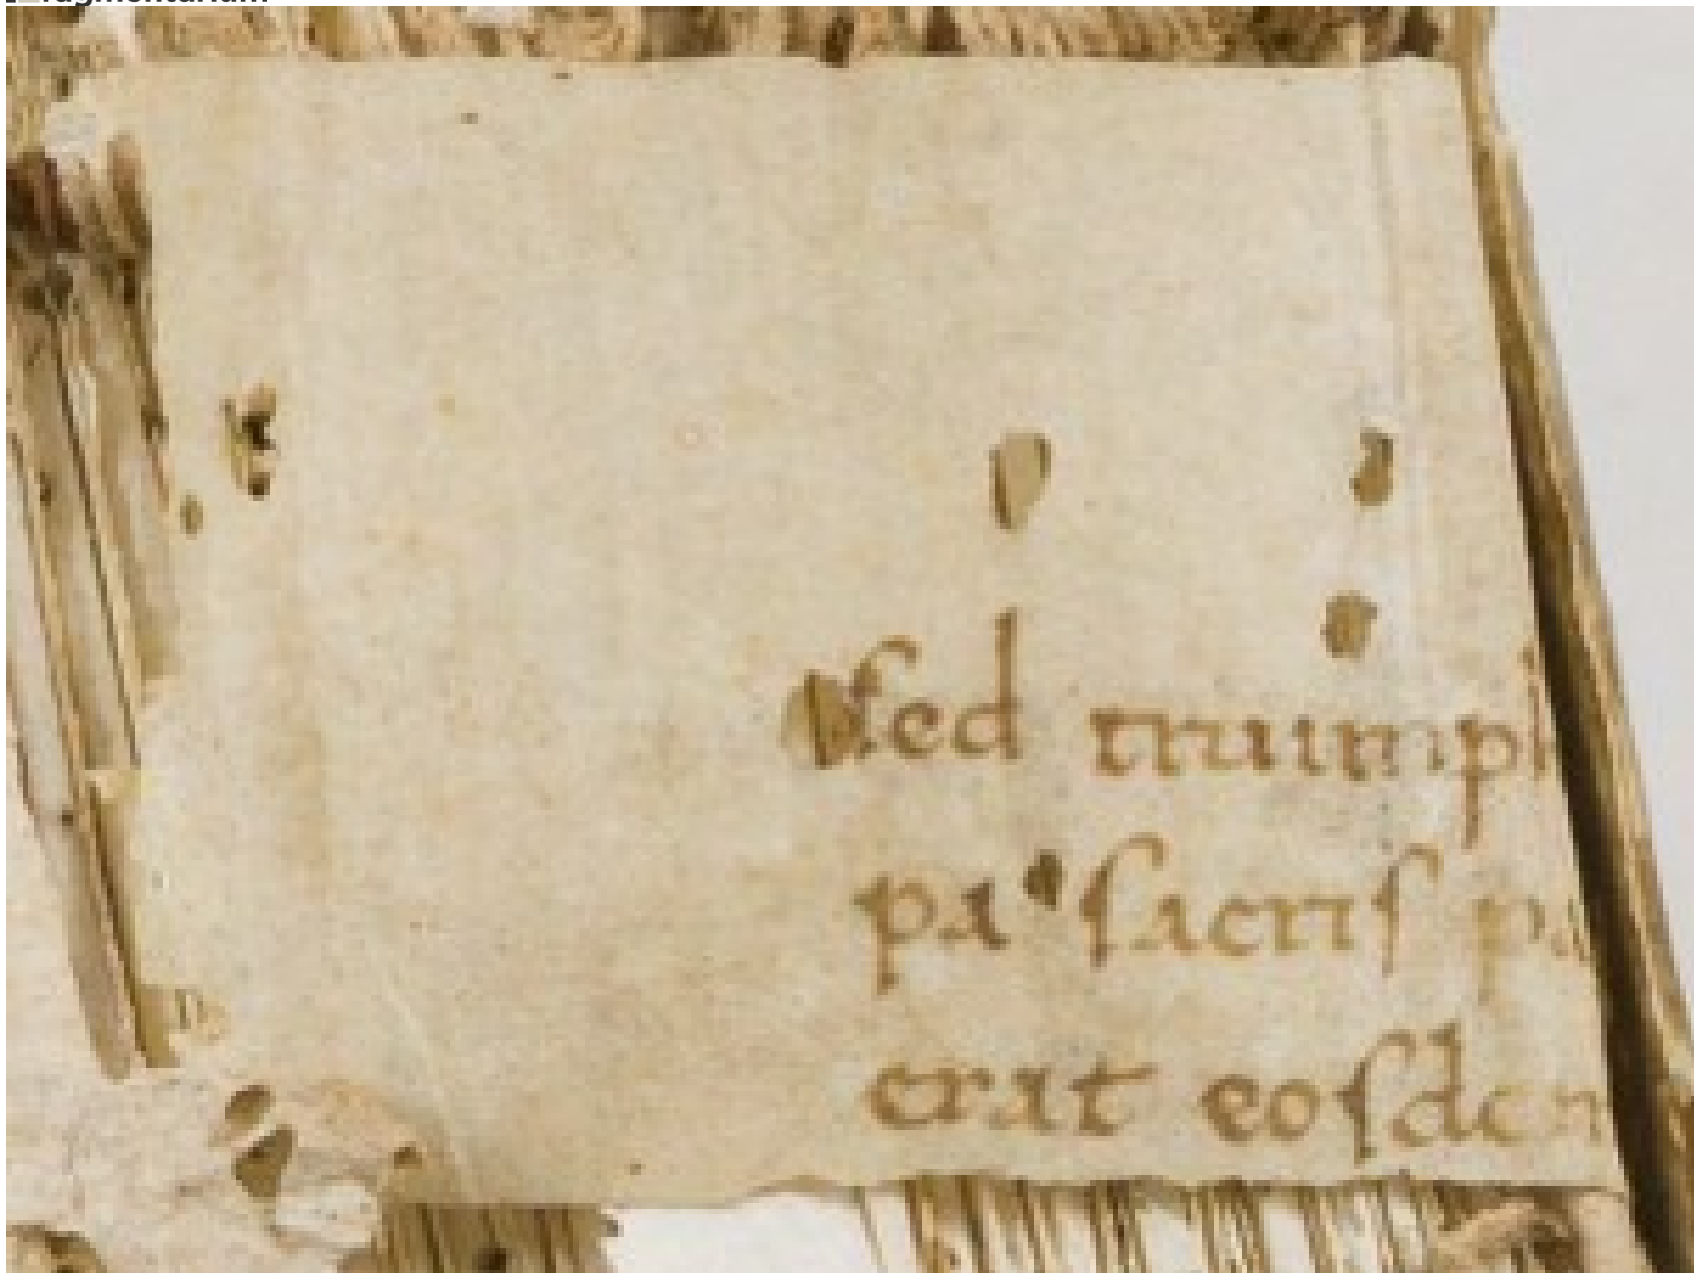 sed triump
pa sacris pa
erat eosdem